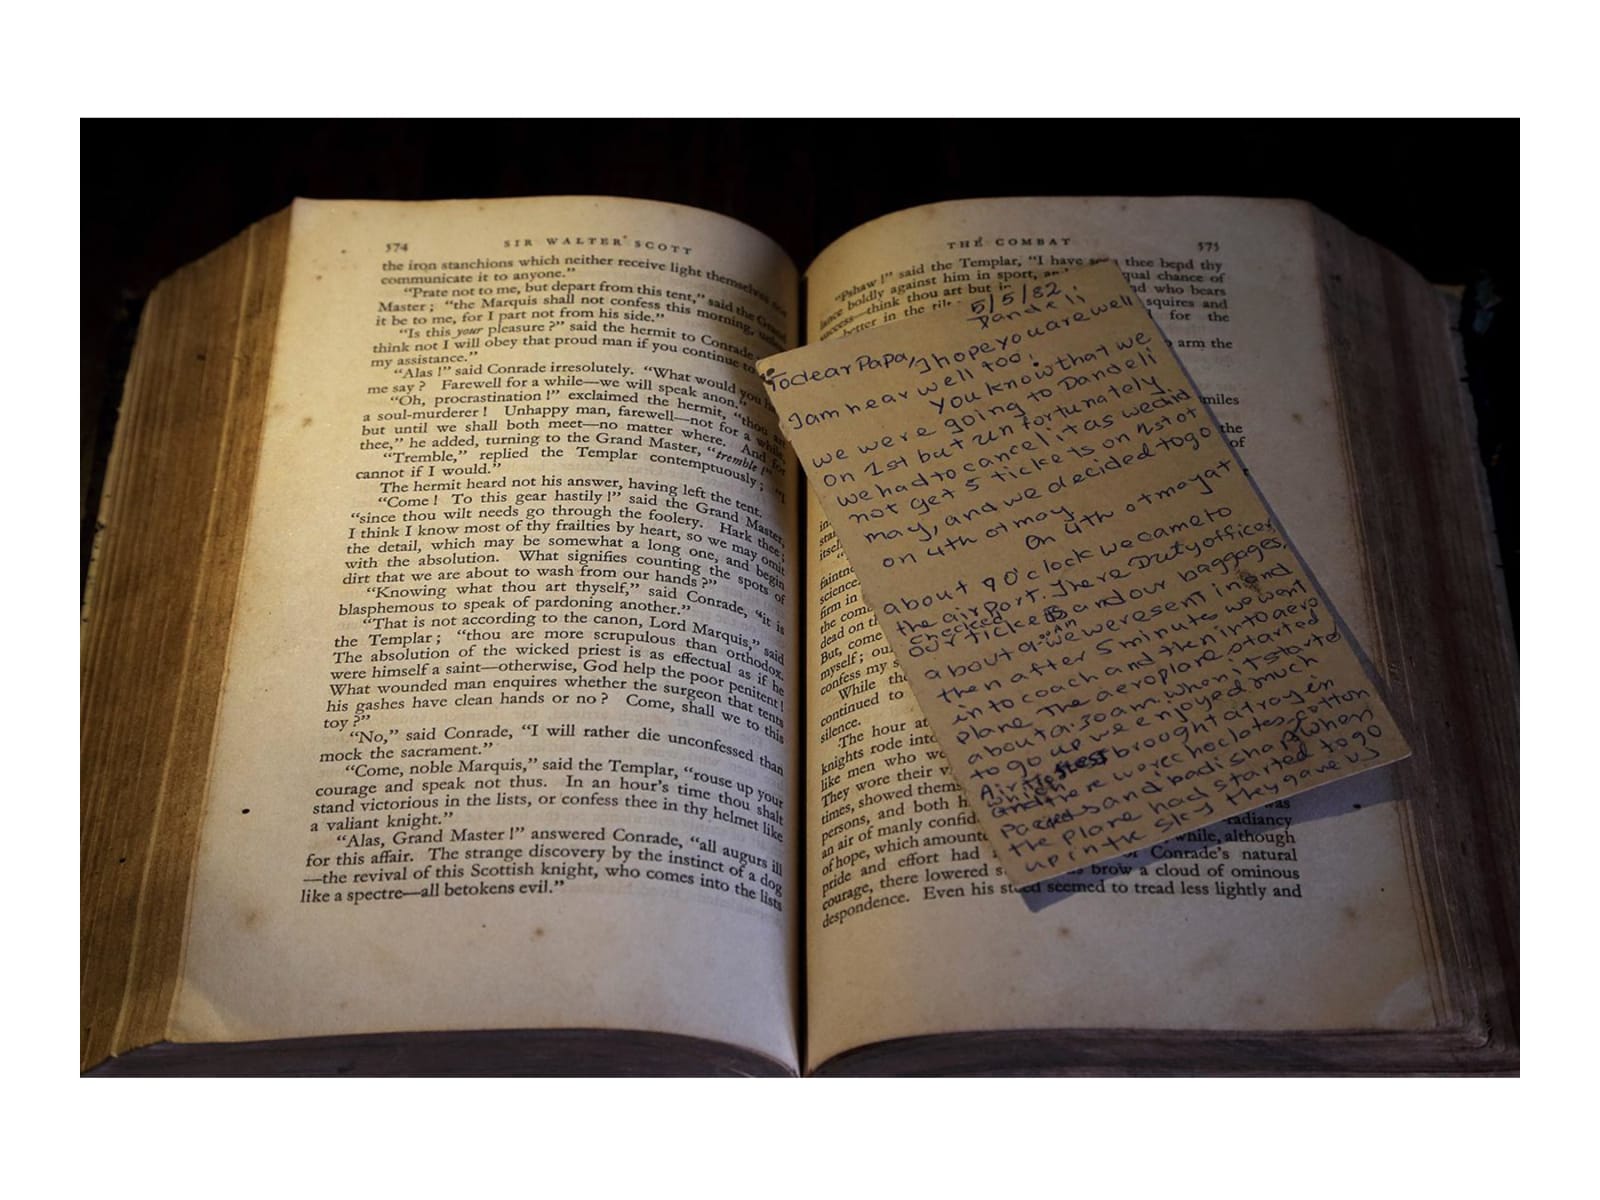 374
SIR WALTER SCOTT
the iron stanchions which neither receive light themselves nor
communicate it to anyone.”
“Prate not to me, but depart from this tent,” said the Grand
Master; “the Marquis shall not confess this morning, unless
it be to me, for I part not from his side.”
“Is this your pleasure?” said the hermit to Conrade
think not I will obey that proud man if you continue to
my assistance.”
“Alas!” said Conrade irresolutely. “What would you
me say? Farewell for a while—we will speak anon.”
“Oh, procrastination!” exclaimed the hermit, “thou art
a soul-murderer! Unhappy man, farewell—not for a while,
but until we shall both meet—no matter where. And for
thee,” he added, turning to the Grand Master, “tremble!”
“Tremble,” replied the Templar contemptuously; “I
cannot if I would.”
The hermit heard not his answer, having left the tent.
“Come! To this gear hastily!” said the Grand Master,
“since thou wilt needs go through the foolery. Hark thee;
I think I know most of thy frailties by heart, so we may omit
the detail, which may be somewhat a long one, and begin
with the absolution. What signifies counting the spots of
dirt that we are about to wash from our hands?”
“Knowing what thou art thyself,” said Conrade, “it is
blasphemous to speak of pardoning another.”
“That is not according to the canon, Lord Marquis,” said
the Templar; “thou are more scrupulous than orthodox.
The absolution of the wicked priest is as effectual as if he
were himself a saint—otherwise, God help the poor penitent!
What wounded man enquires whether the surgeon that tents
his gashes have clean hands or no? Come, shall we to this
toy?”
“No,” said Conrade, “I will rather die unconfessed than
mock the sacrament.”
“Come, noble Marquis,” said the Templar, “rouse up your
courage and speak not thus. In an hour’s time thou shalt
stand victorious in the lists, or confess thee in thy helmet like
a valiant knight.”
“Alas, Grand Master!” answered Conrade, “all augurs ill
for this affair. The strange discovery by the instinct of a dog
—the revival of this Scottish knight, who comes into the lists
like a spectre—all betokens evil.”
THE COMBAT
575
“Pshaw!” said the Templar, “I have thee bend thy
lance boldly against him in sport, qual chance of
success—think thou art but in nd who bears
better in the squires and
for the
arm the
miles
the
of
in
itself
faintne
science
firm in
the com
dead on th
But, come
myself; ou
confess my s
While the
continued to
silence.
The hour at
knights rode into
like men who we
They wore their v
times, showed thems
persons, and both h
an air of manly confid
of hope, which amount was
pride and effort had radiancy
courage, there lowered while, although
of Conrade’s natural
brow a cloud of ominous
despondence. Even his steed seemed to tread less lightly and
5/5/82.
Dandeli
To dear Papa, I hope you are well
I am hear well too.
You know that we
we were going to Dandeli
on 1st but unfortunately
we had to cancel it as we did
not get 5 tickets on 1st of
may, and we decided to go
on 4th of may.
On 4th of may at
about 9 O'clock we came to
the airport. There Duty officer
checked
our tickets and our baggages,
about we were sent in and
then after 5 minutes we went
into coach and then into aero
plane The aeroplane started
about 9.30 am. when it started
to go up we enjoyed much
Air brought a tray in
which
and there were choclates, cotton
and ipadisha. When
the plane had started to go
up in the sky they gave us